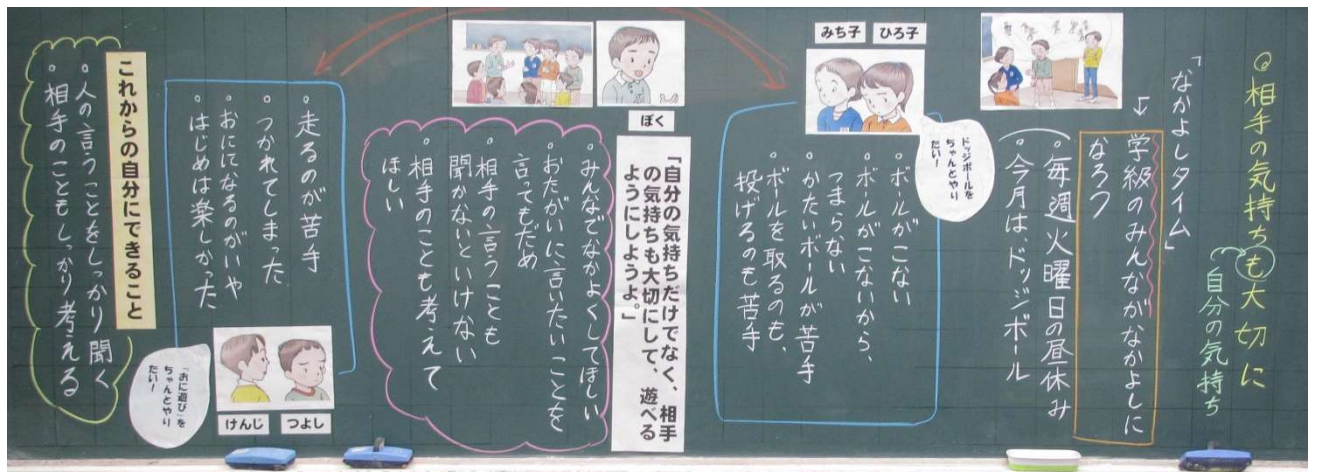 ◎相手の気持ちも大切に
自分の気持ち
「なかよしタイム」
↓
学級のみんながなかよしに
なろう
・毎週火曜日の昼休み
・今月はドッジボール
みち子
ひろ子
ドッジボールを
ちゃんとやり
たい!
・ボールがこない
・ボールがこないから、
つまらない
・かたいボールが苦手
・ボールを取るのも、
投げるのも苦手
ぼく
「自分の気持ちだけでなく、相手
の気持ちも大切にして、遊べる
ようにしようよ。」
・みんなでなかよくしてほしい
・おたがいに言いたいことを
言ってもだめ
・相手の言うことも
聞かないといけない
・相手のことも考えて
ほしい
・走るのが苦手
・つかれてしまった
・おにになるのがいや
・はじめは楽しかった
けんじ
つよし
「おに遊び」を
ちゃんとやり
たい!
これからの自分にできること
・人の言うことをしっかり聞く
・相手のこともしっかり考える